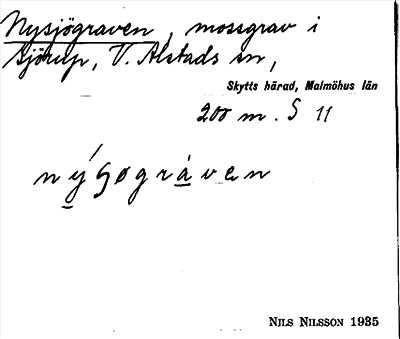 Nysjögraven, mossgrav i
Sjörup, V. Alstads sn,
Skytts härad, Malmöhus län
200 m. S 11
nýsograven
NILS NILSSON 1935